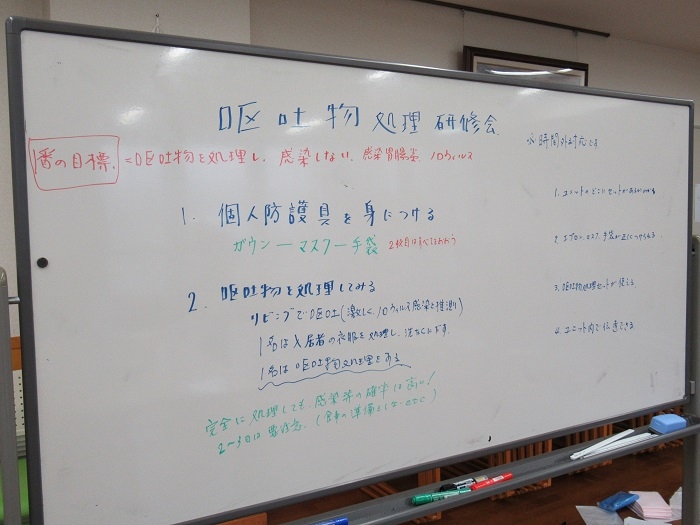 嘔吐物処理研修会
1番の目標 =嘔吐物を処理し、感染しない、感染胃腸炎、ノロウィルス
1. 個人防護具を身につける
ガウンーマスクー手袋 2枚目はすべてをおおう
2. 嘔吐物を処理してみる
リビングで嘔吐(激しく、ノロウィルス感染と推測)
1名は入居者の衣服を処理し、
1名は嘔吐物処理をする
完全に処理しても感染等の確率は高い!
2〜3日は要注意。(食事の準備
※時間外対応です
1. ユニットのどこにセットがあるか
2. エプロン、マスク、手袋が正につけられる
3. 嘔吐物処理セットが使える
4. ユニット内で伝達できる